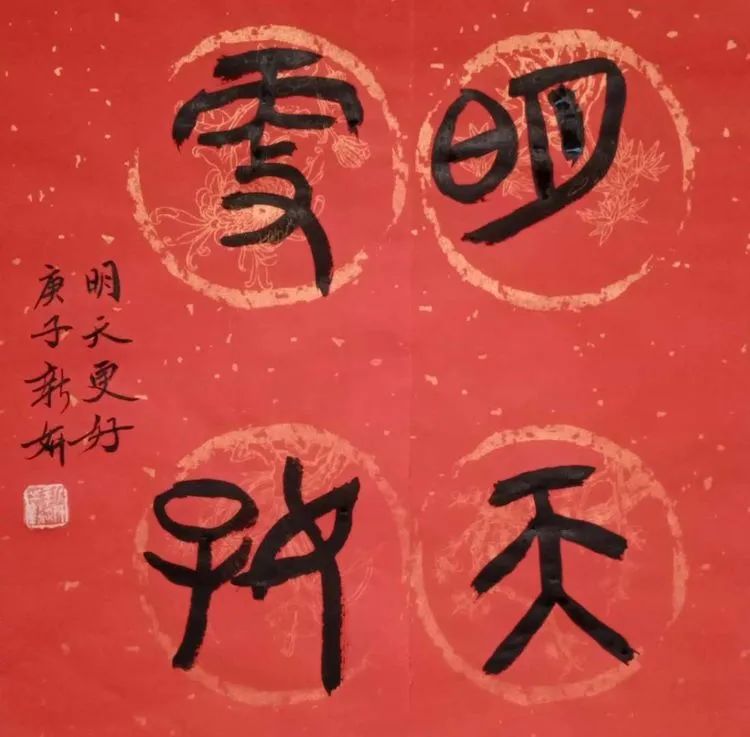 明天
更好
明天更好
庚子新妍